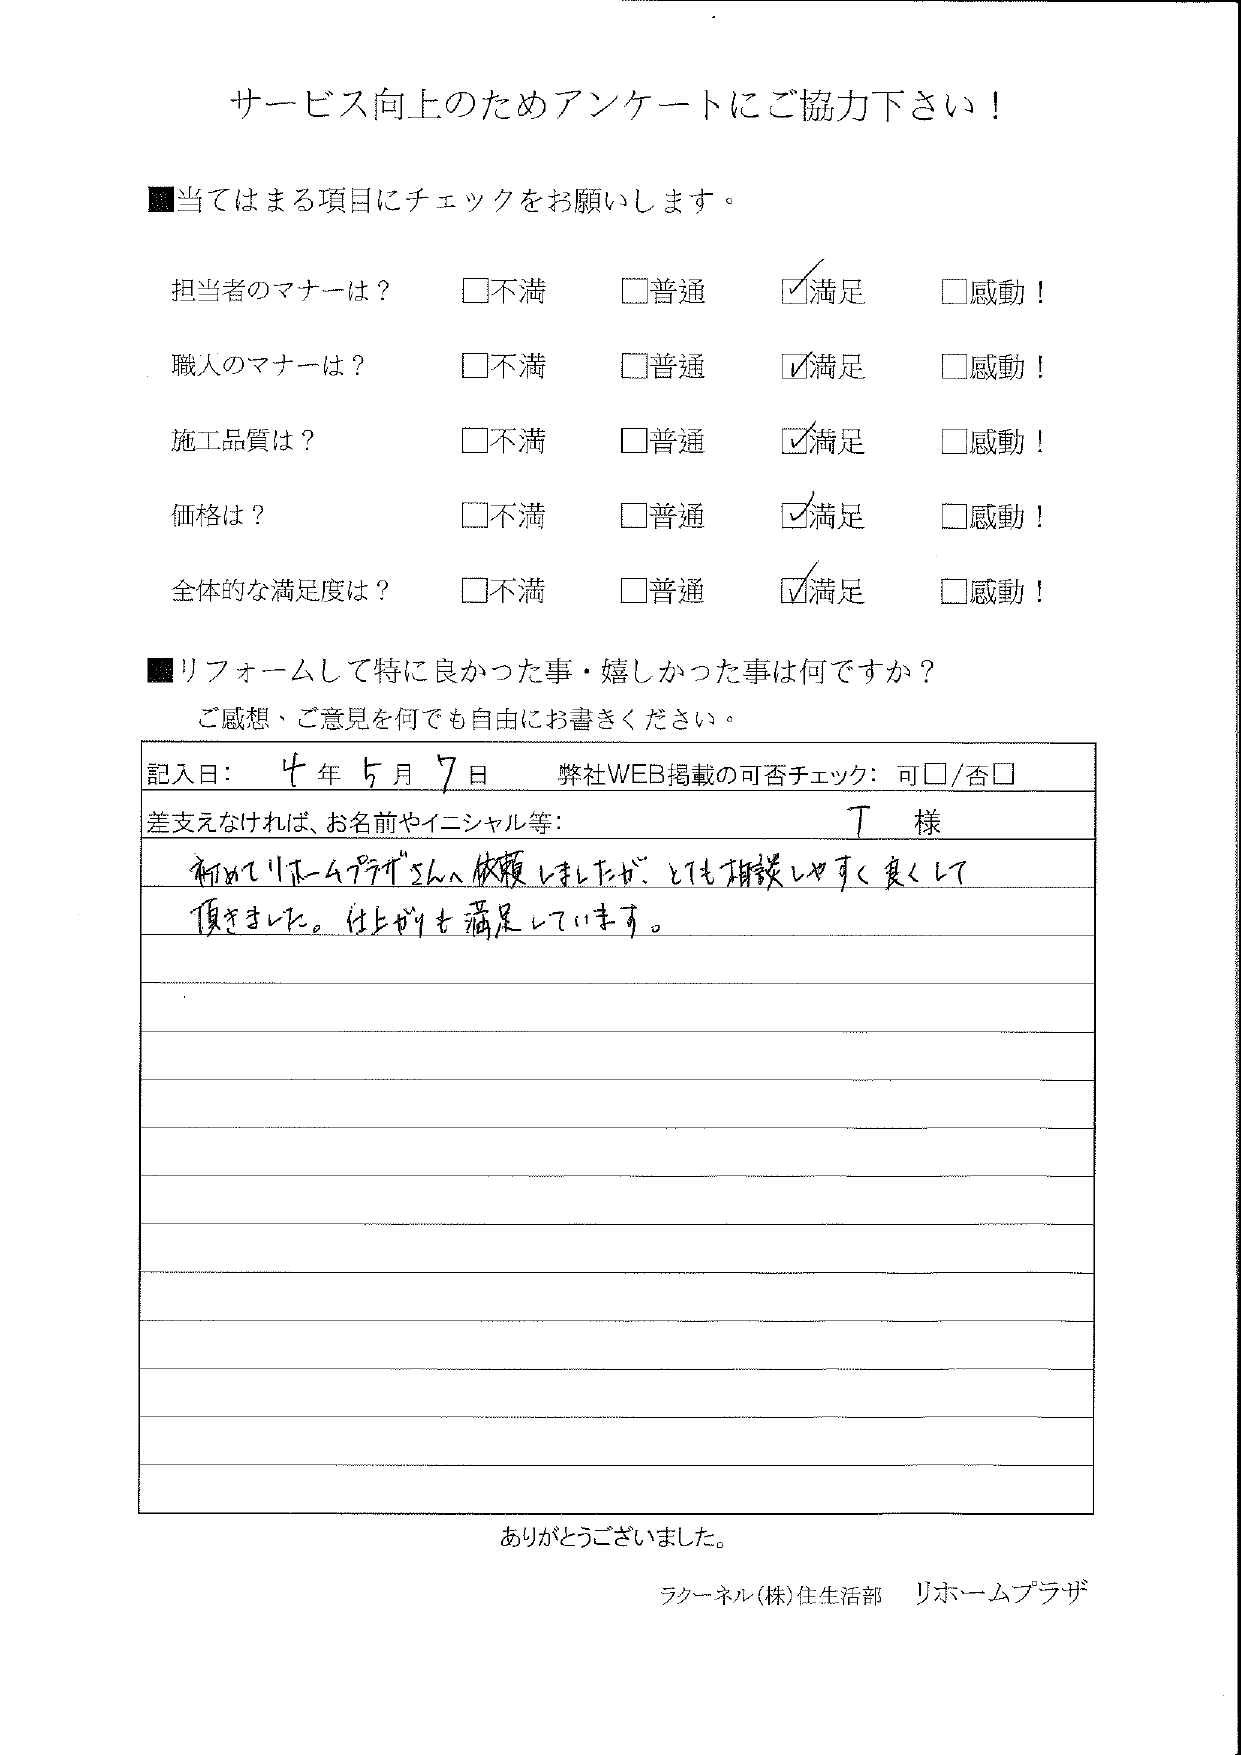 サービス向上のためアンケートにご協力下さい！
■当てはまる項目にチェックをお願いします。
担当者のマナーは？ □不満 □普通 ☑満足 □感動！
職人のマナーは？ □不満 □普通 ☑満足 □感動！
施工品質は？ □不満 □普通 ☑満足 □感動！
価格は？ □不満 □普通 ☑満足 □感動！
全体的な満足度は？ □不満 □普通 ☑満足 □感動！
■リフォームして特に良かった事・嬉しかった事は何ですか？
ご感想、ご意見を何でも自由にお書きください。
記入日： 4 年 5 月 7 日 弊社WEB掲載の可否チェック： 可□/否□
差支えなければ、お名前やイニシャル等： T 様
初めてリホームプラザさんへ依頼しましたが、とても相談しやすく良くして
頂きました。仕上がりも満足しています。
ありがとうございました。
ラクーネル（株）住生活部 リホームプラザ